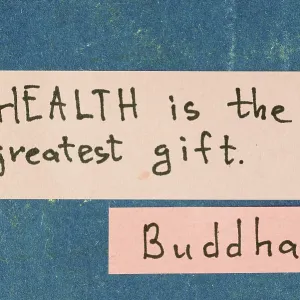 HEALTH is the
greatest gift.
Buddha